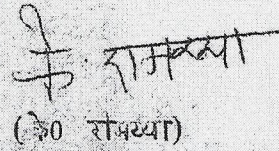 के. रामय्या
(के0 रामय्या)